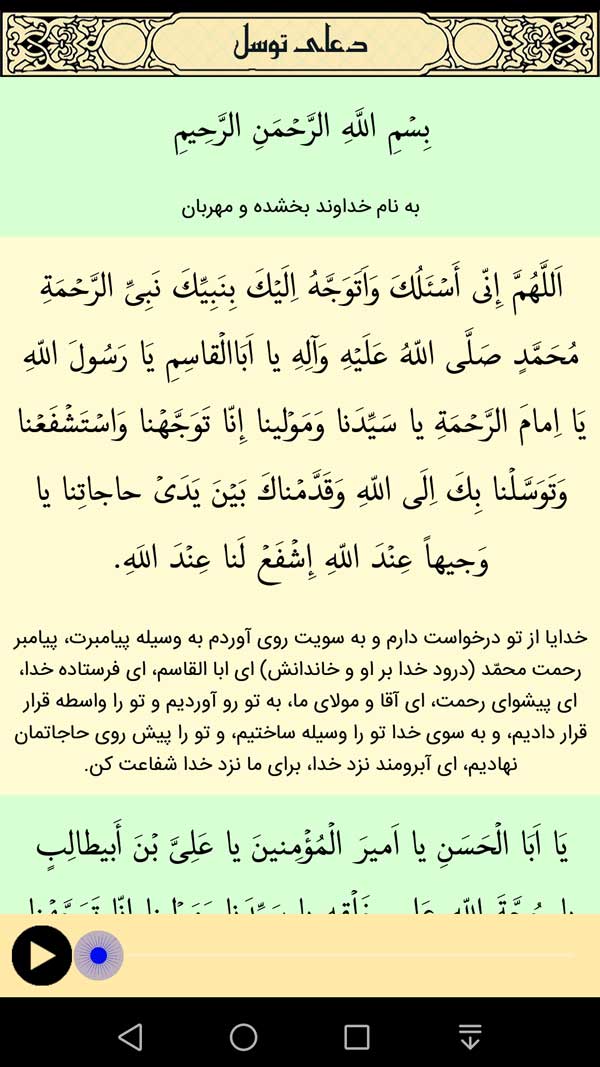 دعای توسل
بِسْمِ اللَّهِ الرَّحْمَنِ الرَّحِيمِ
به نام خداوند بخشده و مهربان
اَللَّهُمَّ إِنّی أَسْئَلُكَ وَاَتَوَجَّهُ اِلَیْكَ بِنَبِیِّكَ نَبِیِّ الرَّحْمَةِ
مُحَمَّدٍ صَلَّی اللّهُ عَلَیْهِ وَآلِهِ یا اَبَاالْقاسِمِ یَا رَسُولَ اللّهِ
یَا اِمامَ الرَّحْمَةِ یا سَیِّدَنا وَمَوْلینا إِنّا تَوَجَّهْنا وَاسْتَشْفَعْنا
وَتَوَسَّلْنا بِكَ اِلَی اللّهِ وَقَدَّمْناكَ بَیْنَ یَدَیْ حاجاتِنا یا
وَجیهاً عِنْدَ اللّهِ إِشْفَعْ لَنا عِنْدَ اللَهِ.
خدایا از تو درخواست دارم و به سویت روی آوردم به وسیله پیامبرت، پیامبر
رحمت محمّد (درود خدا بر او و خاندانش) ای ابا القاسم، ای فرستاده خدا،
ای پیشوای رحمت، ای آقا و مولای ما، به تو رو آوردیم و تو را واسطه قرار
قرار دادیم، و به سوی خدا تو را وسیله ساختیم، و تو را پیش روی حاجاتمان
نهادیم، ای آبرومند نزد خدا، برای ما نزد خدا شفاعت کن.
یَا اَبَا الْحَسَنِ یا اَمیرَ الْمُؤْمِنینَ یا عَلِیَّ بْنَ أَبیطالِبٍ